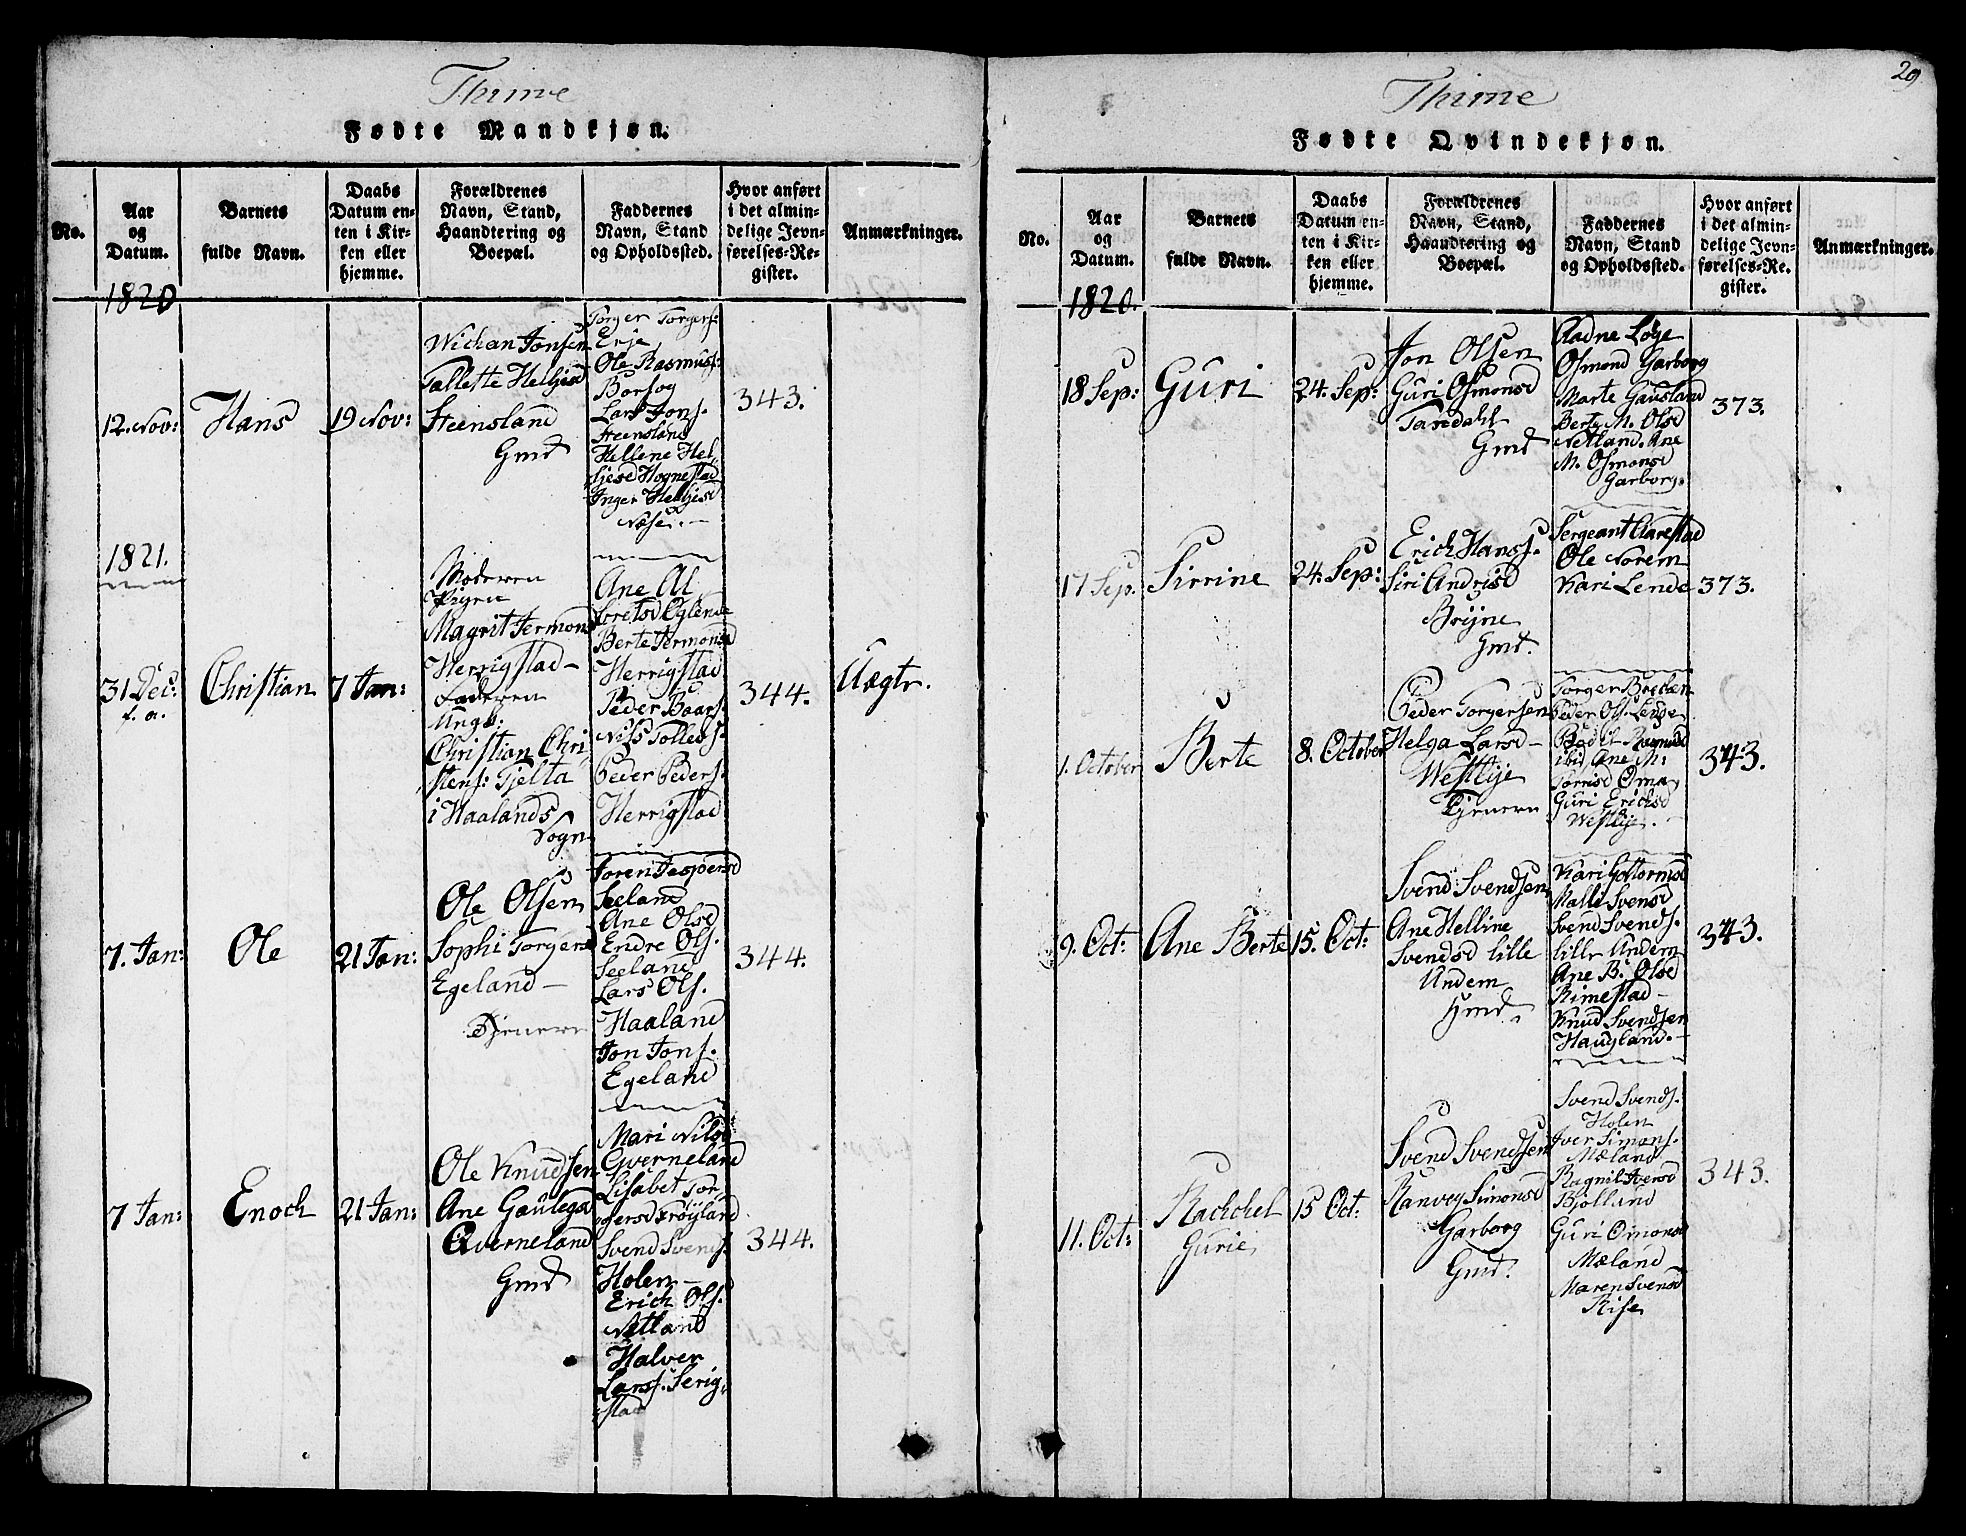 Thime
Fødte Mandkjøn.
No.
Aar
og
Datum.
Barnets
fulde Navn.
Daabs
Datum en-
ten i Kir-
ken eller
hjemme.
Forældrenes
Navn, Stand,
Haandtering og
Boepæl.
Faddernes
Navn, Stand
og Opholdssted.
Hvor anført
i det almin-
delige Jevn-
førelses-Re-
gister.
Anmærkninger.
1820
12. Nov:
Hans
19 Nov:
Wichan Jonsen
Tallette Heljesd
Steensland
Gmd
Torger Torgers:
Erje
Ole Rasmuss:
Lars Jons.
Steensland
Hellene Hel-
jesd Hognestad
Inger Heljesd
Næse. —
343.
1821.
31 Dec:
f. a.
Christian
7 Jan:
Moderen
Pigen
Magrit Jermons
Herrigstad —
Faderen
Ungk.
Christian Chri-
stens: Gjelta
i Haalands
Sogn
Ane Al
Berte Jermonsd
Herrigstad
Peder Baars.
Nils Tolleos.
Peder Peders.
Herrigstad
344.
Uægtr.
7. Jan:
Ole
21 Jan:
Ole Olsen
Sophi Torgersd
Egeland —
Tjenere
Joren Jespersd
Seeland
Ane Olsd
Endre Ols.
Seeland
Lars Ols.
Haaland
Jon Jons.
Egeland
344.
7 Jan:
Enoch
21 Jan:
Ole Knudsen
Ane Gautegsd
Qverneland
Gmd
Mari Nilsd
Qverneland
Lisabet Tor-
gersd Frøyland
Svend Svends.
Holen —
Erich Ols.
Netland
Halver
Larss. Serig-
stad
344.
29
Thime
Fødte Qvindekjøn.
No.
Aar
og
Datum.
Barnets
fulde Navn.
Daabs
Datum en-
ten i Kir-
ken eller
hjemme.
Forældrenes
Navn, Stand,
Haandtering og
Boepæl.
Faddernes
Navn, Stand
og Opholdssted.
Hvor anført
i det almin-
delige Jevn-
førelses-Re-
gister.
Anmærkninger.
1820.
18 Sep:
Guri
24. Sep:
Jon Olsen
Guri Osmonsd
Tardahl
Gmd
Aadne Løge
Osmond Garborg
Marte Gausland
Berte M. Olsd
Netland. Ane
M. Osmonsd
Garborg.
373.
17 Sep.
Sirrine
24. Sep:
Erich Hanss.
Siri Andrisd
Bryne
Gmd.
Sergeant Aarestad
Ole Norem
Kari Lende
373.
1. October
Berte
8. October
Peder Torgersen
Helga Larsd —
Westlye
Tjenere
Peder Ols. Lende
ibid Ane M:
Torrisd Oma
Guri Erichsd
Westlye. —
343.
9. Oct:
Ane Berte
15. Oct:
Svend Svendsen
Ane Helline
Svendsd lille
Undem
Gmd.
Kari Gottormsd
Malli Svensd
Svend Svends.
lille Undem
Ane B. Olsd
Rimestad —
Knud Svendsen
Haugland. —
343.
11. Oct:
Rachchel
Gurie
15 Oct:
Svend Svendsen
Ranveg Simonsd
Garborg
Gmd.
Svend Svends.
Holen
Iver Simons.
Mæland
Ragnil Iversd
Bjolland
Guri Omonsd
Mæland
Maren Svensd
Rise
343.